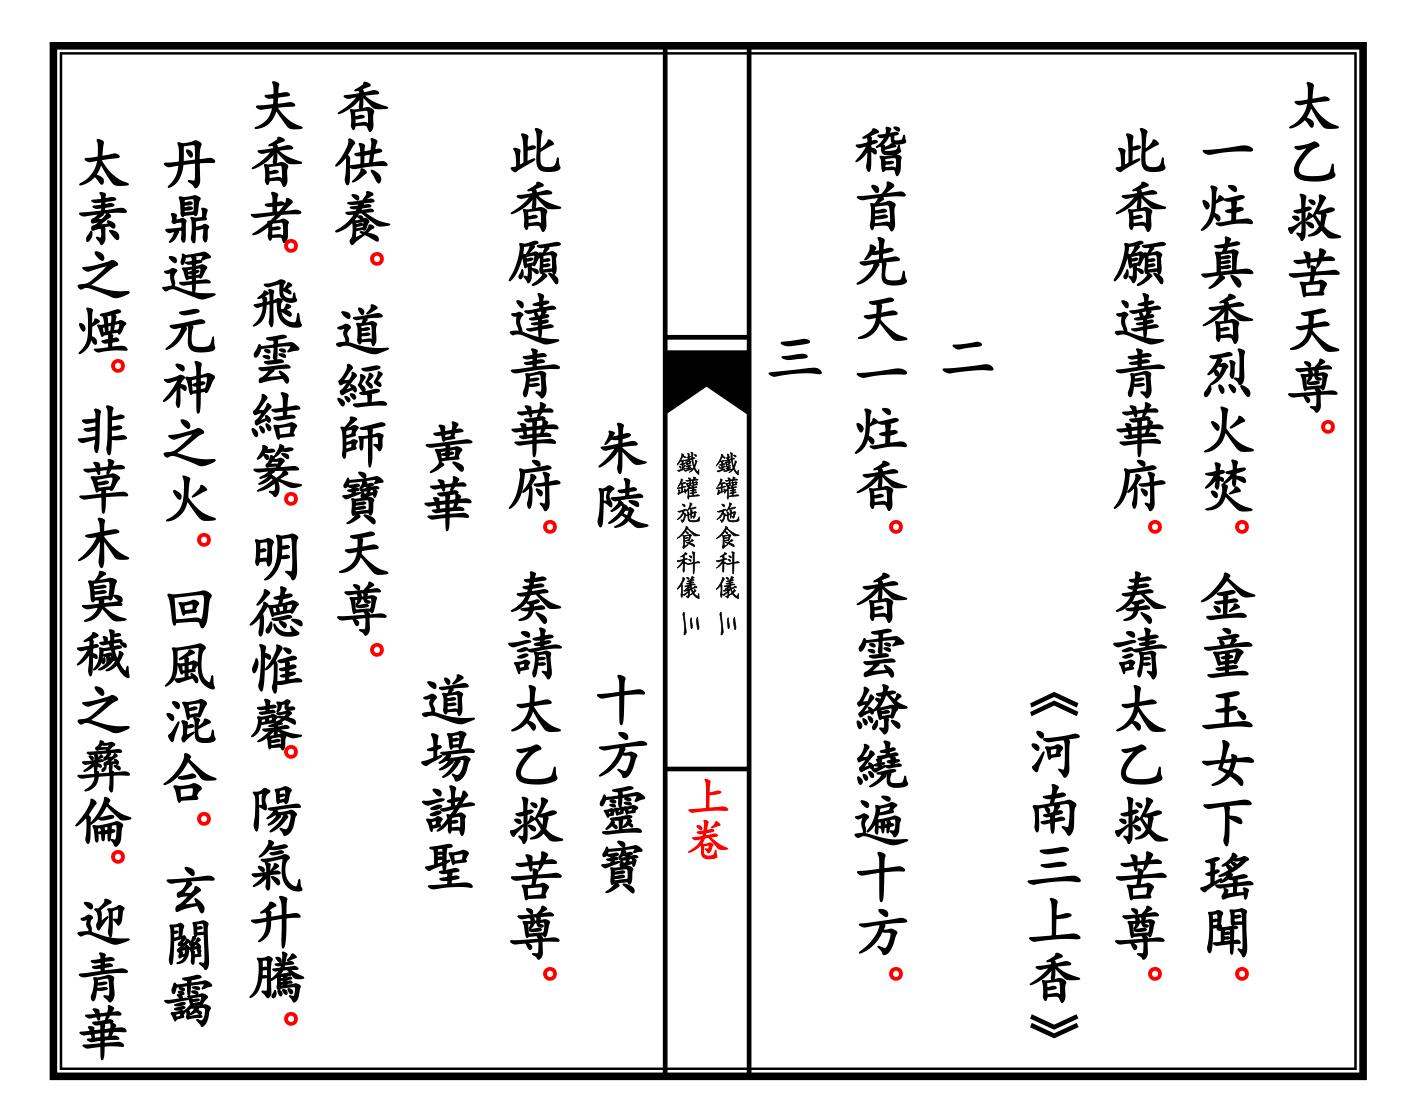 太乙救苦天尊。
一炷真香烈火焚。 金童玉女下瑤聞。
此香願達青華府。 奏請太乙救苦尊。
《河南三上香》
二
稽首先天一炷香。 香雲繚繞遍十方。
三
鐵罐施食科儀 三
鐵罐施食科儀 三
上卷
朱陵 十方靈寶
此香願達青華府。 奏請太乙救苦尊。
黃華 道場諸聖
香供養。 道經師寶天尊。
夫香者。飛雲結篆。明德惟馨。陽氣升騰。
丹鼎運元神之火。 回風混合。 玄關靄
太素之煙。 非草木臭穢之彝倫。 迎青華